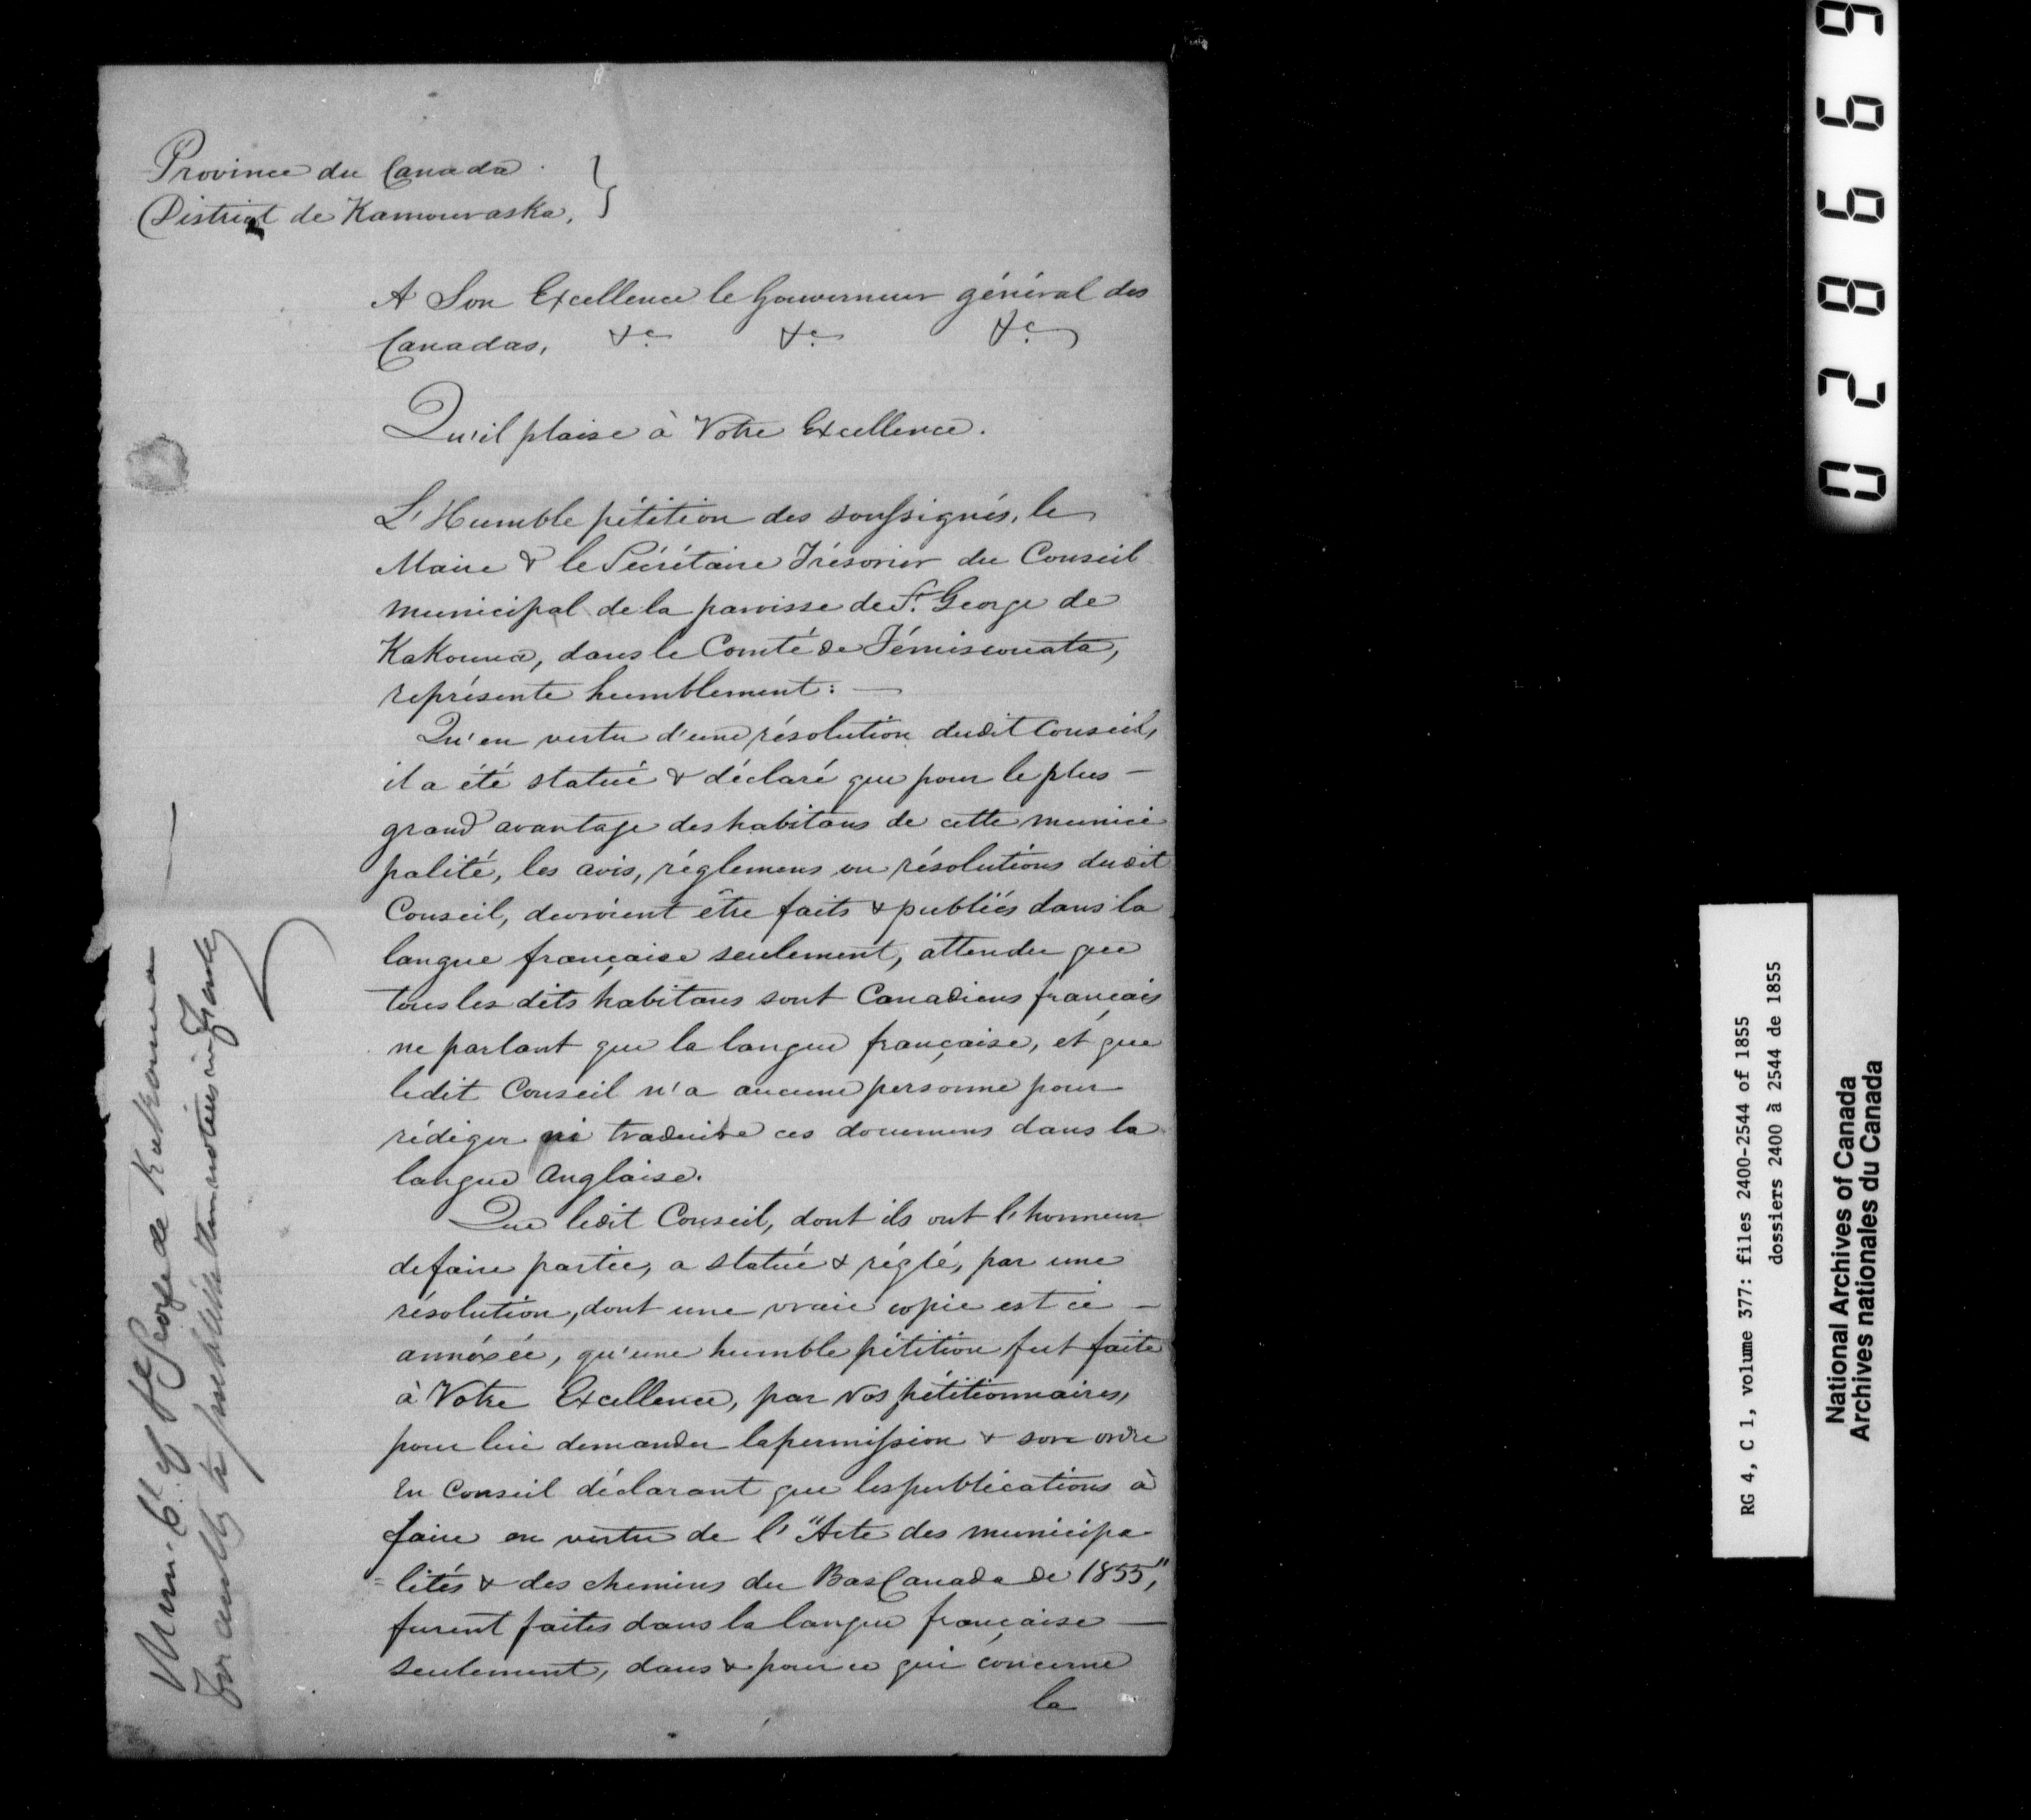 Province du Canada
District de Kamouraska,
A Son Excellence le Gouverneur général des
Canadas, &c &c &c
Qu'il plaise à Votre Excellence.
L'Humble pétition des soussignés, le
Maire & le Sécrétaire Trésorier du Conseil
municipal de la paroisse de St. George de
Kakouna, dans le Comté de Témiscouata,
représente humblement: —
Qu'en vertu d'une résolution dudit Conseil,
il a été statué & déclaré que pour le plus —
grand avantage des habitans de cette munici
palité, les avis, réglemens ou résolutions dudit
Conseil, devroient être faits & publiés dans la
langue française seulement, attendu que
tous les dits habitans sont Canadiens français
ne parlant que la langue française, et que
ledit Conseil n'a aucune personne pour
rédiger ni traduire ces documens dans la
langue Anglaise.
Que ledit Conseil, dont ils ont l'honneur
de faire partie, a statué & réglé, par une
résolution, dont une vraie copie est ci —
annéxée, qu'une humble pétition fut faite
à Votre Excellence, par Vos pétitionnaires,
pour lui demander la permission & son ordre
en Conseil déclarant que les publications à
faire en vertu de l'"Acte des municipa-
=lités & des chemins du Bas Canada de 1855,"
furent faites dans la langue française —
seulement, dans & pour ce qui concerne
la
Mun. Cl. of St George de Kakouna —
For authy to publish their notices in French
028669
RG 4, C 1, volume 377: files 2400-2544 of 1855
dossiers 2400 à 2544 de 1855
National Archives of Canada
Archives nationales du Canada